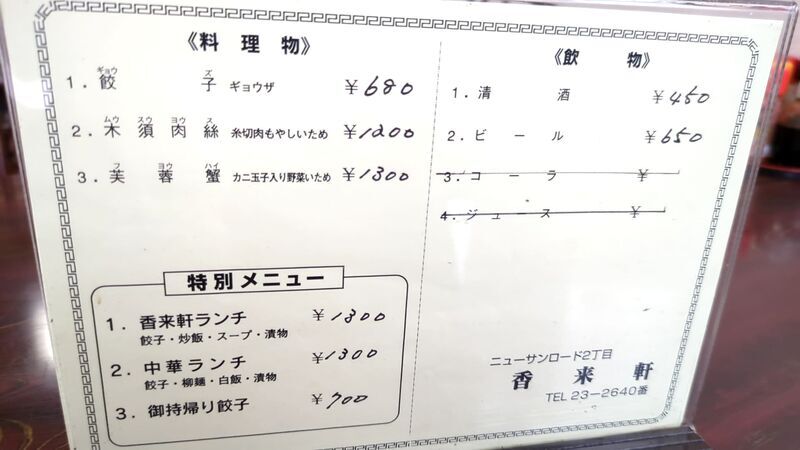 《料理物》
ギョウ ズ
1．餃子 ギョウザ ￥680
ムウ スウ ヨウ ス
2．木須肉絲 糸切肉もやしいため ￥1200
フ ヨウ ハイ
3．芙蓉蟹 カニ玉子入り野菜いため ￥1300
特別メニュー
1．香来軒ランチ ￥1300
餃子・炒飯・スープ・漬物
2．中華ランチ ￥1300
餃子・柳麺・白飯・漬物
3．御持帰り餃子 ￥700
《飲物》
1．清酒 ￥450
2．ビール ￥650
3．コーラ ￥
4．ジュース ￥
ニューサンロード2丁目
香来軒
TEL 23-2640番